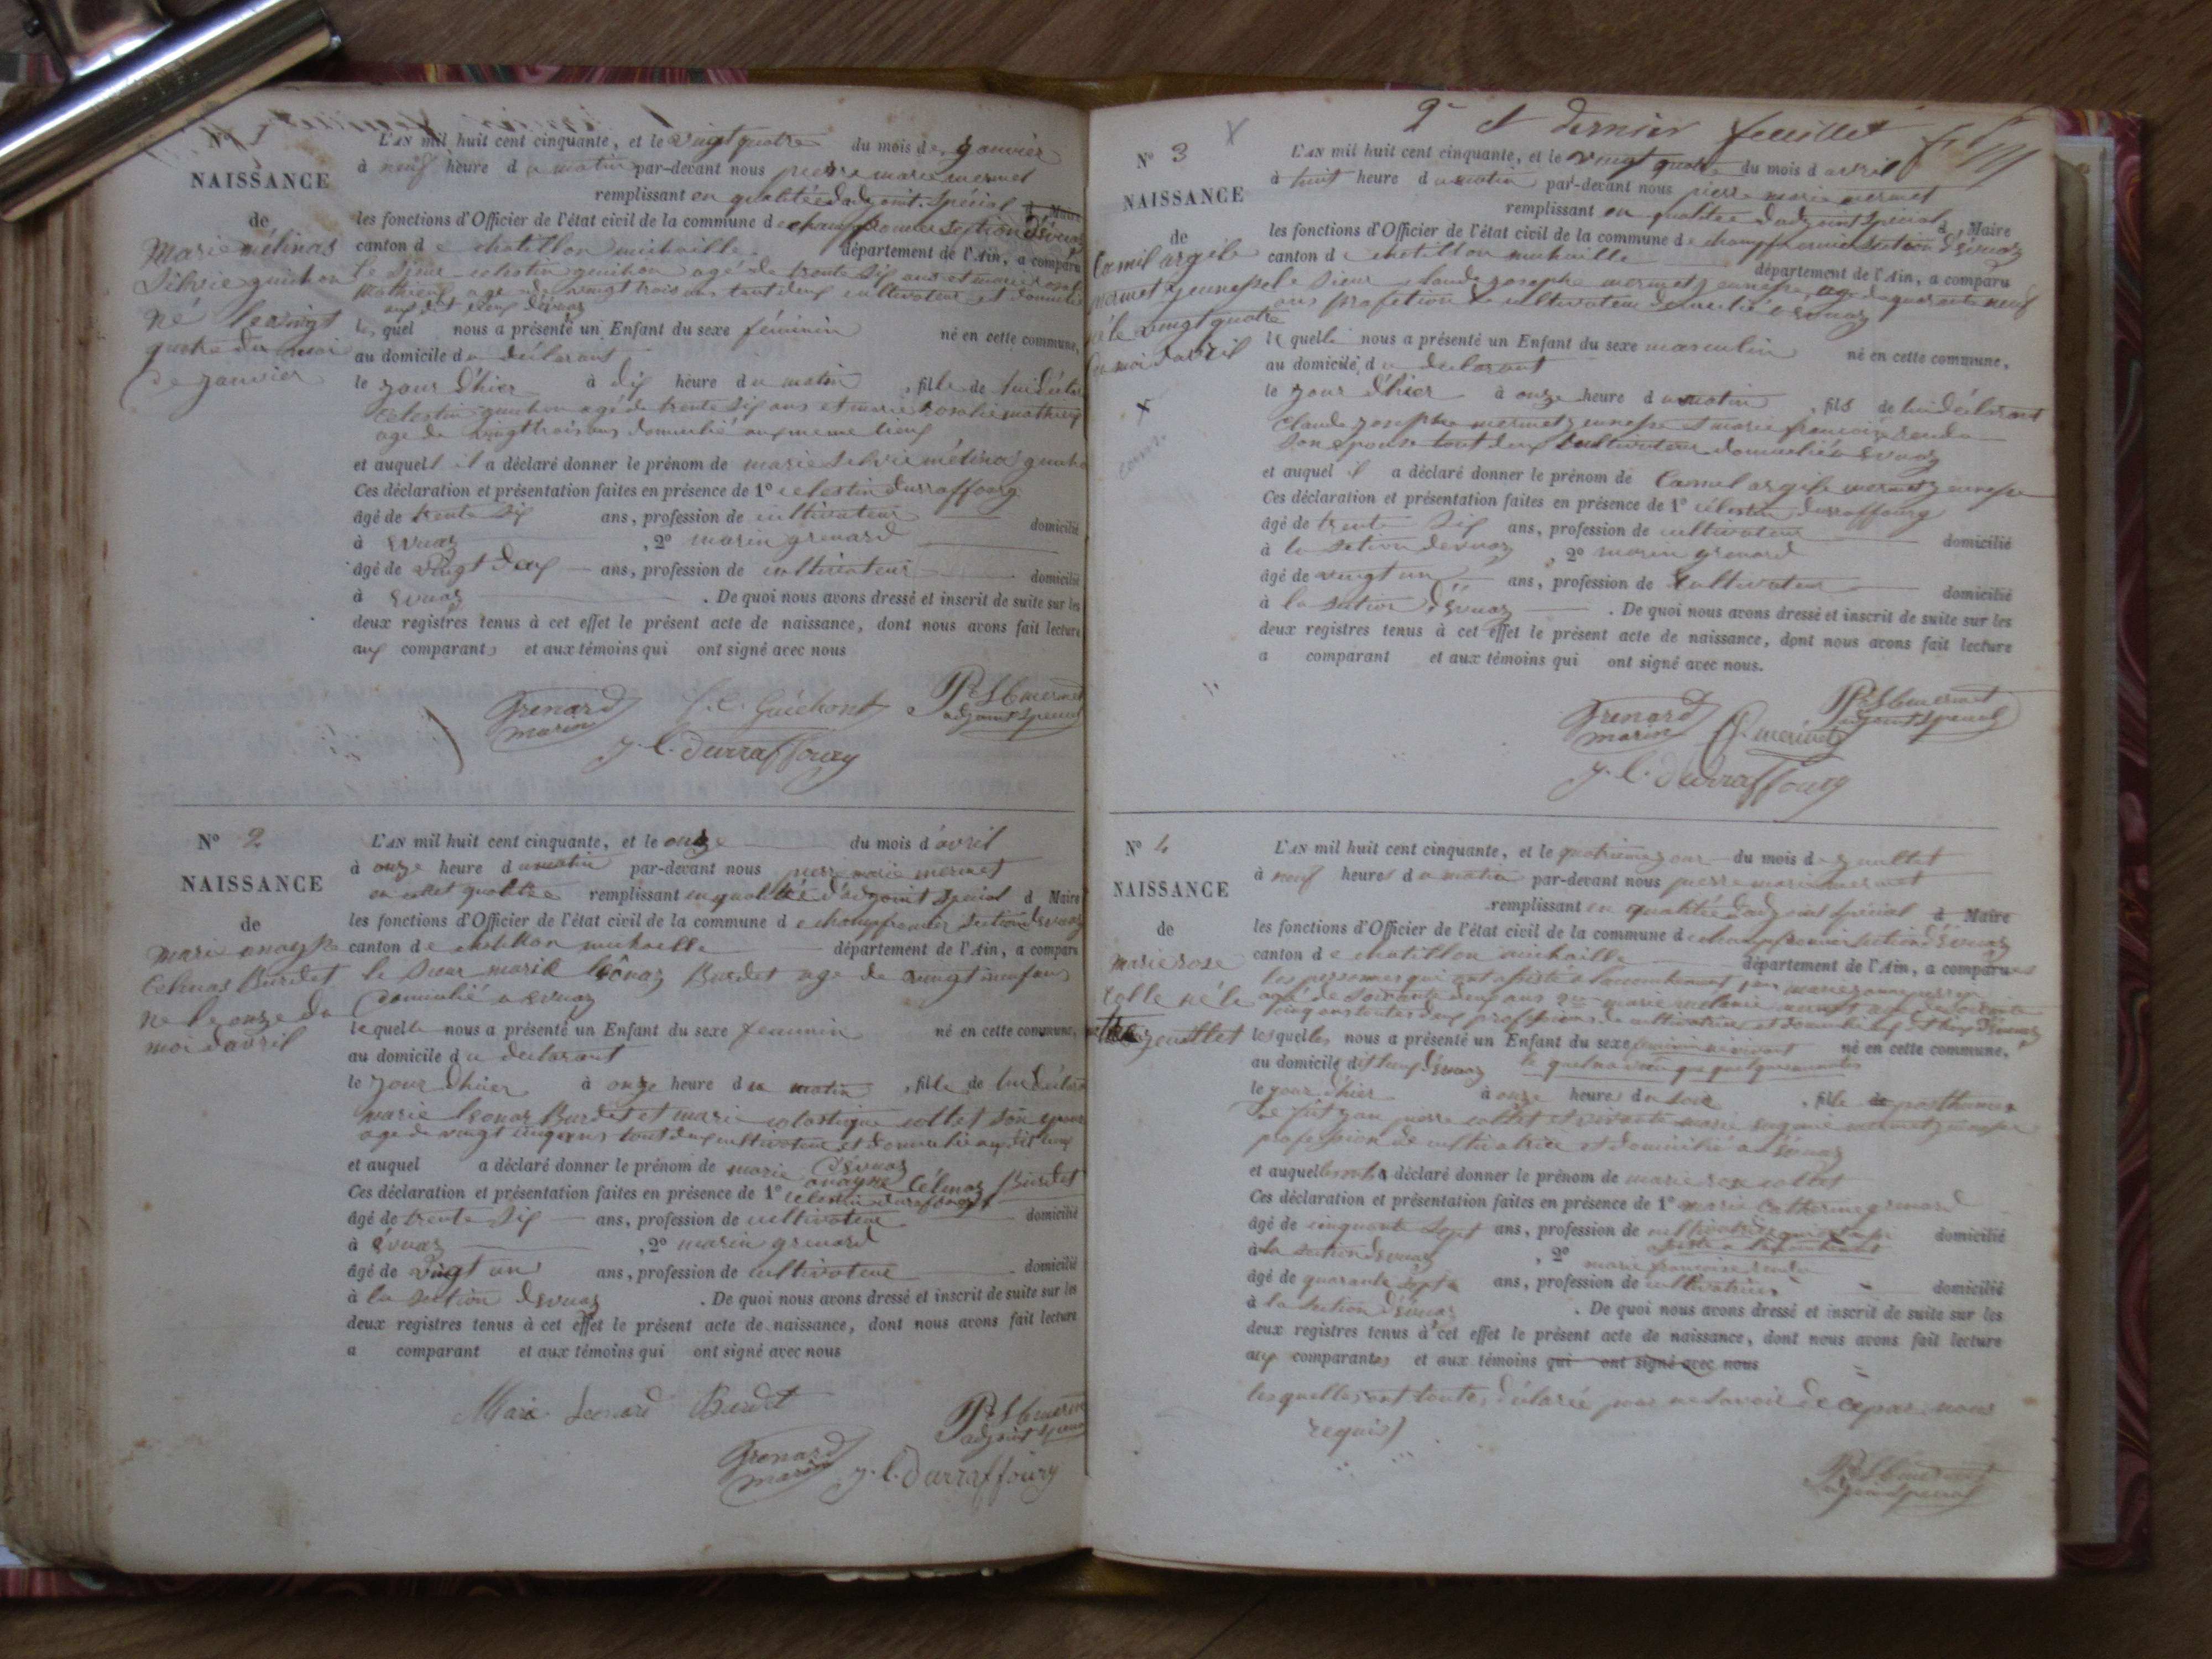 N°
NAISSANCE
de
Marie mélinas
Silvie guichon
né le vingt
quatre du moi
de janvier
L'AN mil huit cent cinquante, et le vingt quatre du mois de janvier
à neuf heure du matin par-devant nous pierre marie mermet
remplissant en qualitée d'adjoint spécial d Maire
les fonctions d'Officier de l'état civil de la commune de champfromier section d'évuaz
canton de chatillon michaille département de l'Ain, a comparu
le sieur celestin guichon agé de trente six ans et marie rosalie
mathieux age de vingt trois ans tout deux cultivateur et domicilié
aux dit lieux d'évuaz
lequel nous a présenté un Enfant du sexe féminin né en cette commune,
au domicile du déclarant
le jour d'hier à dix heure du matin, fille de lui déclarant
Celestin guichon agé de trente six ans et marie rosalie mathieux
age de vingt trois ans domicilié aux meme lieux
et auquel il a déclaré donner le prénom de marie silvie mélinas guichon
Ces déclaration et présentation faites en présence de 1° celestin durraffourg
âgé de trente six ans, profession de cultivateur domicilié
à Evuaz, 2° marin grenard
âgé de vingt deux ans, profession de cultivateur domicilié
à Evuaz. De quoi nous avons dressé et inscrit de suite sur les
deux registres tenus à cet effet le présent acte de naissance, dont nous avons fait lecture
aux comparants et aux témoins qui ont signé avec nous
Grenard marin J. C. Guichont P. mermet adjoint spécial
J. C. Durraffourg
N° 2
NAISSANCE
de
marie
Celinas Burdet
né le onze du
moi d'avril
L'AN mil huit cent cinquante, et le onze du mois d'avril
à onze heure du matin par-devant nous pierre marie mermet
remplissant en qualitée d'adjoint spécial d Maire
les fonctions d'Officier de l'état civil de la commune de champfromier section d'évuaz
canton de chatillon michaille département de l'Ain, a comparu
le sieur marie léonaz Burdet age de vingt neuf ans
domicilié a Evuaz
lequelle nous a présenté un Enfant du sexe feminin né en cette commune,
au domicile du declarant
le jour d'hier à onze heure du matin, fille de lui déclarant
marie leonaz Burdet et marie colastique collet son epouse
age de vingt cinq ans tout deux cultivateur et domicilié aux dit lieux
d'évuaz
et auquel a déclaré donner le prénom de marie Célinaz Burdet
Ces déclaration et présentation faites en présence de 1° celestin durafourg
âgé de trente six ans, profession de cultivateur domicilié
à Evuaz, 2° marin grenard
âgé de vingt un ans, profession de cultivateur domicilié
à la section d'evuaz. De quoi nous avons dressé et inscrit de suite sur les
deux registres tenus à cet effet le présent acte de naissance, dont nous avons fait lecture
a comparant et aux témoins qui ont signé avec nous
Marie Leonard Burdet P. mermet adjoint spécial
Grenard marin J. C. Durraffourg
2e et dernier feuillet
N° 3
NAISSANCE
de
Camil argile
mermet jeunepse
né le vingt quatre
du moi d'avril
L'AN mil huit cent cinquante, et le vingt quatre du mois d avril
à huit heure du matin par-devant nous pierre marie mermet
remplissant en qualitée d'adjoint spécial d Maire
les fonctions d'Officier de l'état civil de la commune de champfromier section d'évuaz
canton de chatillon michaille département de l'Ain, a comparu
le sieur claude josephe mermet jeunepse age de quarante neuf
ans profetion de cultivateur domicilié a Evuaz
lequelle nous a présenté un Enfant du sexe masculin né en cette commune,
au domicile du declarant
le jour d'hier à onze heure du matin, fils de lui déclarant
Claude josephe mermet jeunepse et marie francoise
son epouse tout deux cultivateur domicilié a Evuaz
et auquel il a déclaré donner le prénom de Camel argile mermet jeunepse
Ces déclaration et présentation faites en présence de 1° célestin durraffourg
âgé de trente six ans, profession de cultivateur domicilié
à la section devuaz, 2° marin grenard
âgé de vingt un ans, profession de cultivateur domicilié
à la section d'évuaz. De quoi nous avons dressé et inscrit de suite sur les
deux registres tenus à cet effet le présent acte de naissance, dont nous avons fait lecture
a comparant et aux témoins qui ont signé avec nous.
Grenard marin mermet P. mermet adjoint spécial
J. C. Durraffourg
N° 4
NAISSANCE
de
marie rose
collet né le
jeuillet
L'AN mil huit cent cinquante, et le quatrieme jour du mois de jeuillet
à neuf heures du matin par-devant nous pierre marie mermet
remplissant en qualitée d'adjoint spécial d Maire
les fonctions d'Officier de l'état civil de la commune de champfromier section d'évuaz
canton de chatillon michaille département de l'Ain, a comparues
les personnes qui ont asisté a l'acouchement
agé de soixante deux ans marie melanie
cinq ans toutes deux profession de cultivatrice et domicilié
lesquelles nous a présenté un Enfant du sexe feminin né en cette commune,
au domicile dit lieux d'évuaz
le jour d'hier à onze heures du soir, fille posthume
de fut jan pierre collet et vivante marie mermet jeunepse
profession de cultivatrice et domicilié a Evuaz
et auquelles a déclaré donner le prénom de marie rose collet
Ces déclaration et présentation faites en présence de 1° marie Catherine grenard
âgé de cinquante sept ans, profession de cultivatrice domicilié
à la section d'evuaz, 2° marie francoise
âgé de quarante sept ans, profession de cultivatrice domicilié
à la section d'évuaz. De quoi nous avons dressé et inscrit de suite sur les
deux registres tenus à cet effet le présent acte de naissance, dont nous avons fait lecture
aux comparantes et aux témoins qui ont signé avec nous
lesquelles ont toute déclarée ne savoir de ce par nous
requis
P. mermet adjoint spécial